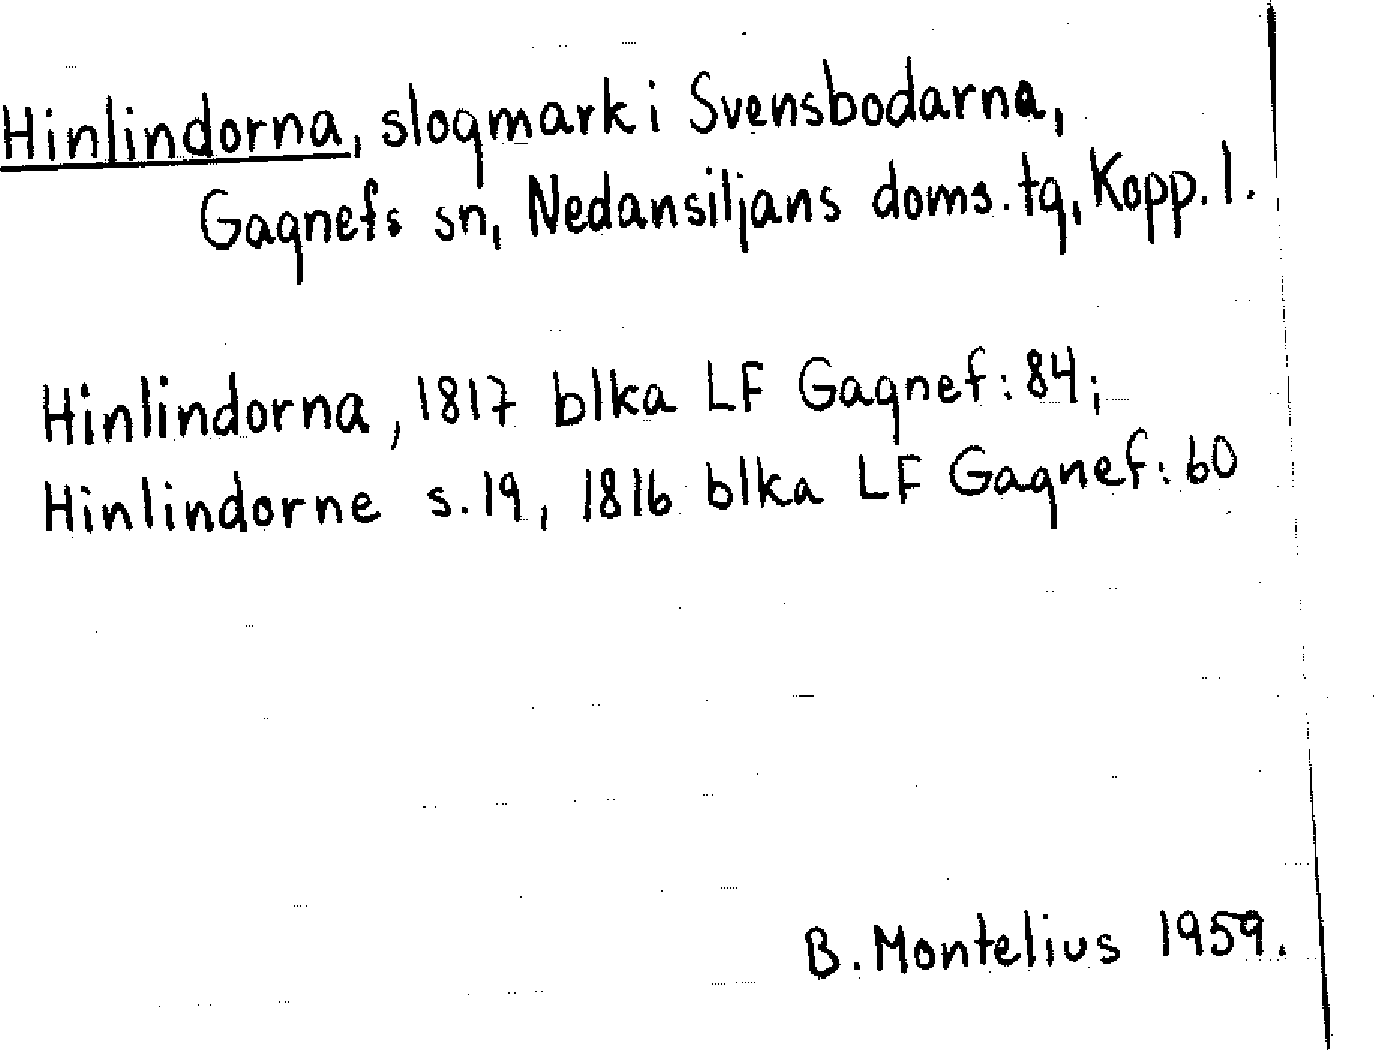 Hinlindorna, slogmark i Svensbodarna,
Gagnefs sn, Nedansiljans doms. tg, Kopp. l.
Hinlindorna, 1817 blka LF Gagnef: 84;
Hinlindorne s. 19, 1816 blka LF Gagnef: 60
B. Montelius 1959.